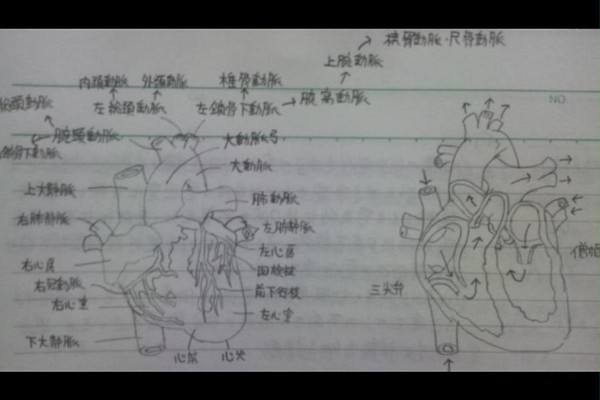 橈骨動脈・尺骨動脈
上腕動脈
内頚動脈 外頚動脈 椎骨動脈
総頚動脈 左総頚動脈 左鎖骨下動脈 腋窩動脈
NO.
腕頭動脈 大動脈弓
鎖骨下動脈 大動脈
上大静脈 肺動脈
右肺静脈 左肺静脈
左心房
右心房 回旋枝
右冠動脈 前下行枝 三尖弁 僧帽
右心室 左心室
下大静脈
心尖